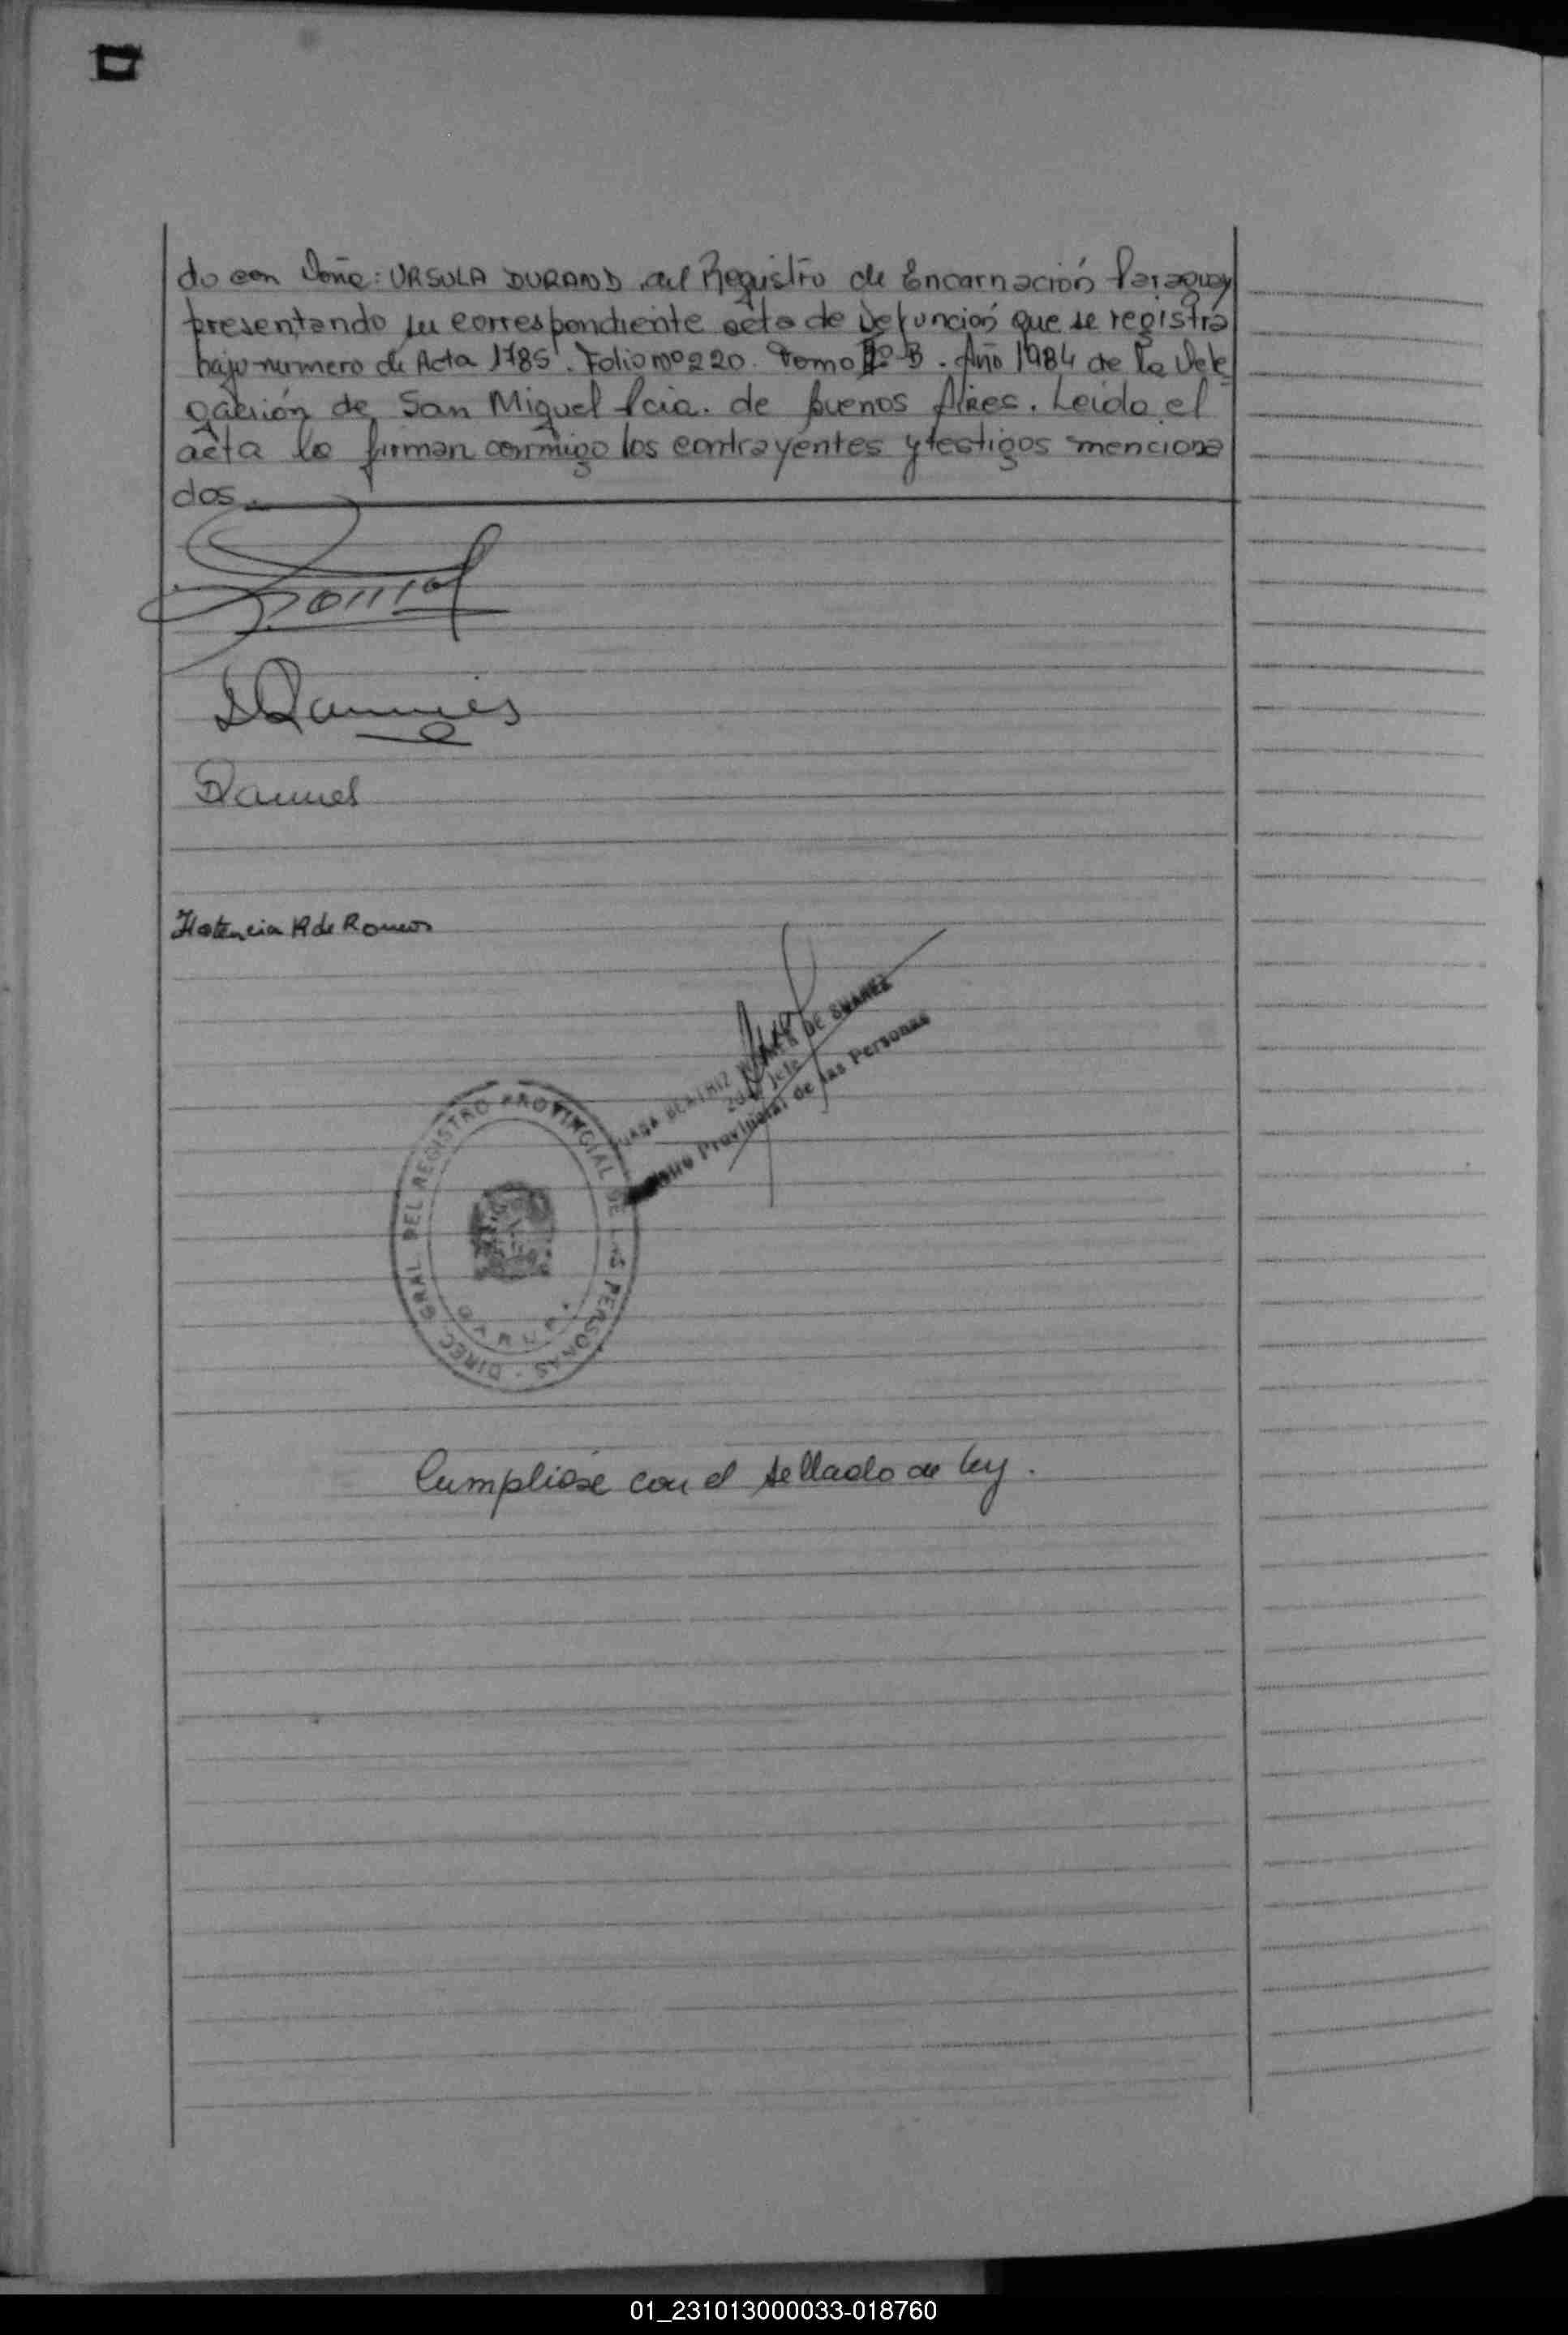 do con Doña: URSULA DURAND del Registro de Encarnación Paraguay
presentando su correspondiente acta de Defunción que se registra
bajo número de Acta 1785. Folio nº 220. Tomo Nº B. Año 1984 de la Dele
gación de San Miguel Pcia. de Buenos Aires. Leída el
acta la firman conmigo los contrayentes y testigos menciona
dos.
Hotencia R de Romero
BEATRIZ DE SUAREZ
2do Jefe
Provincial de las Personas
DIREC GRAL. DEL REGISTRO PROVINCIAL DE LAS PERSONAS
Cumplióse con el sellado de ley.
01_231013000033-018760